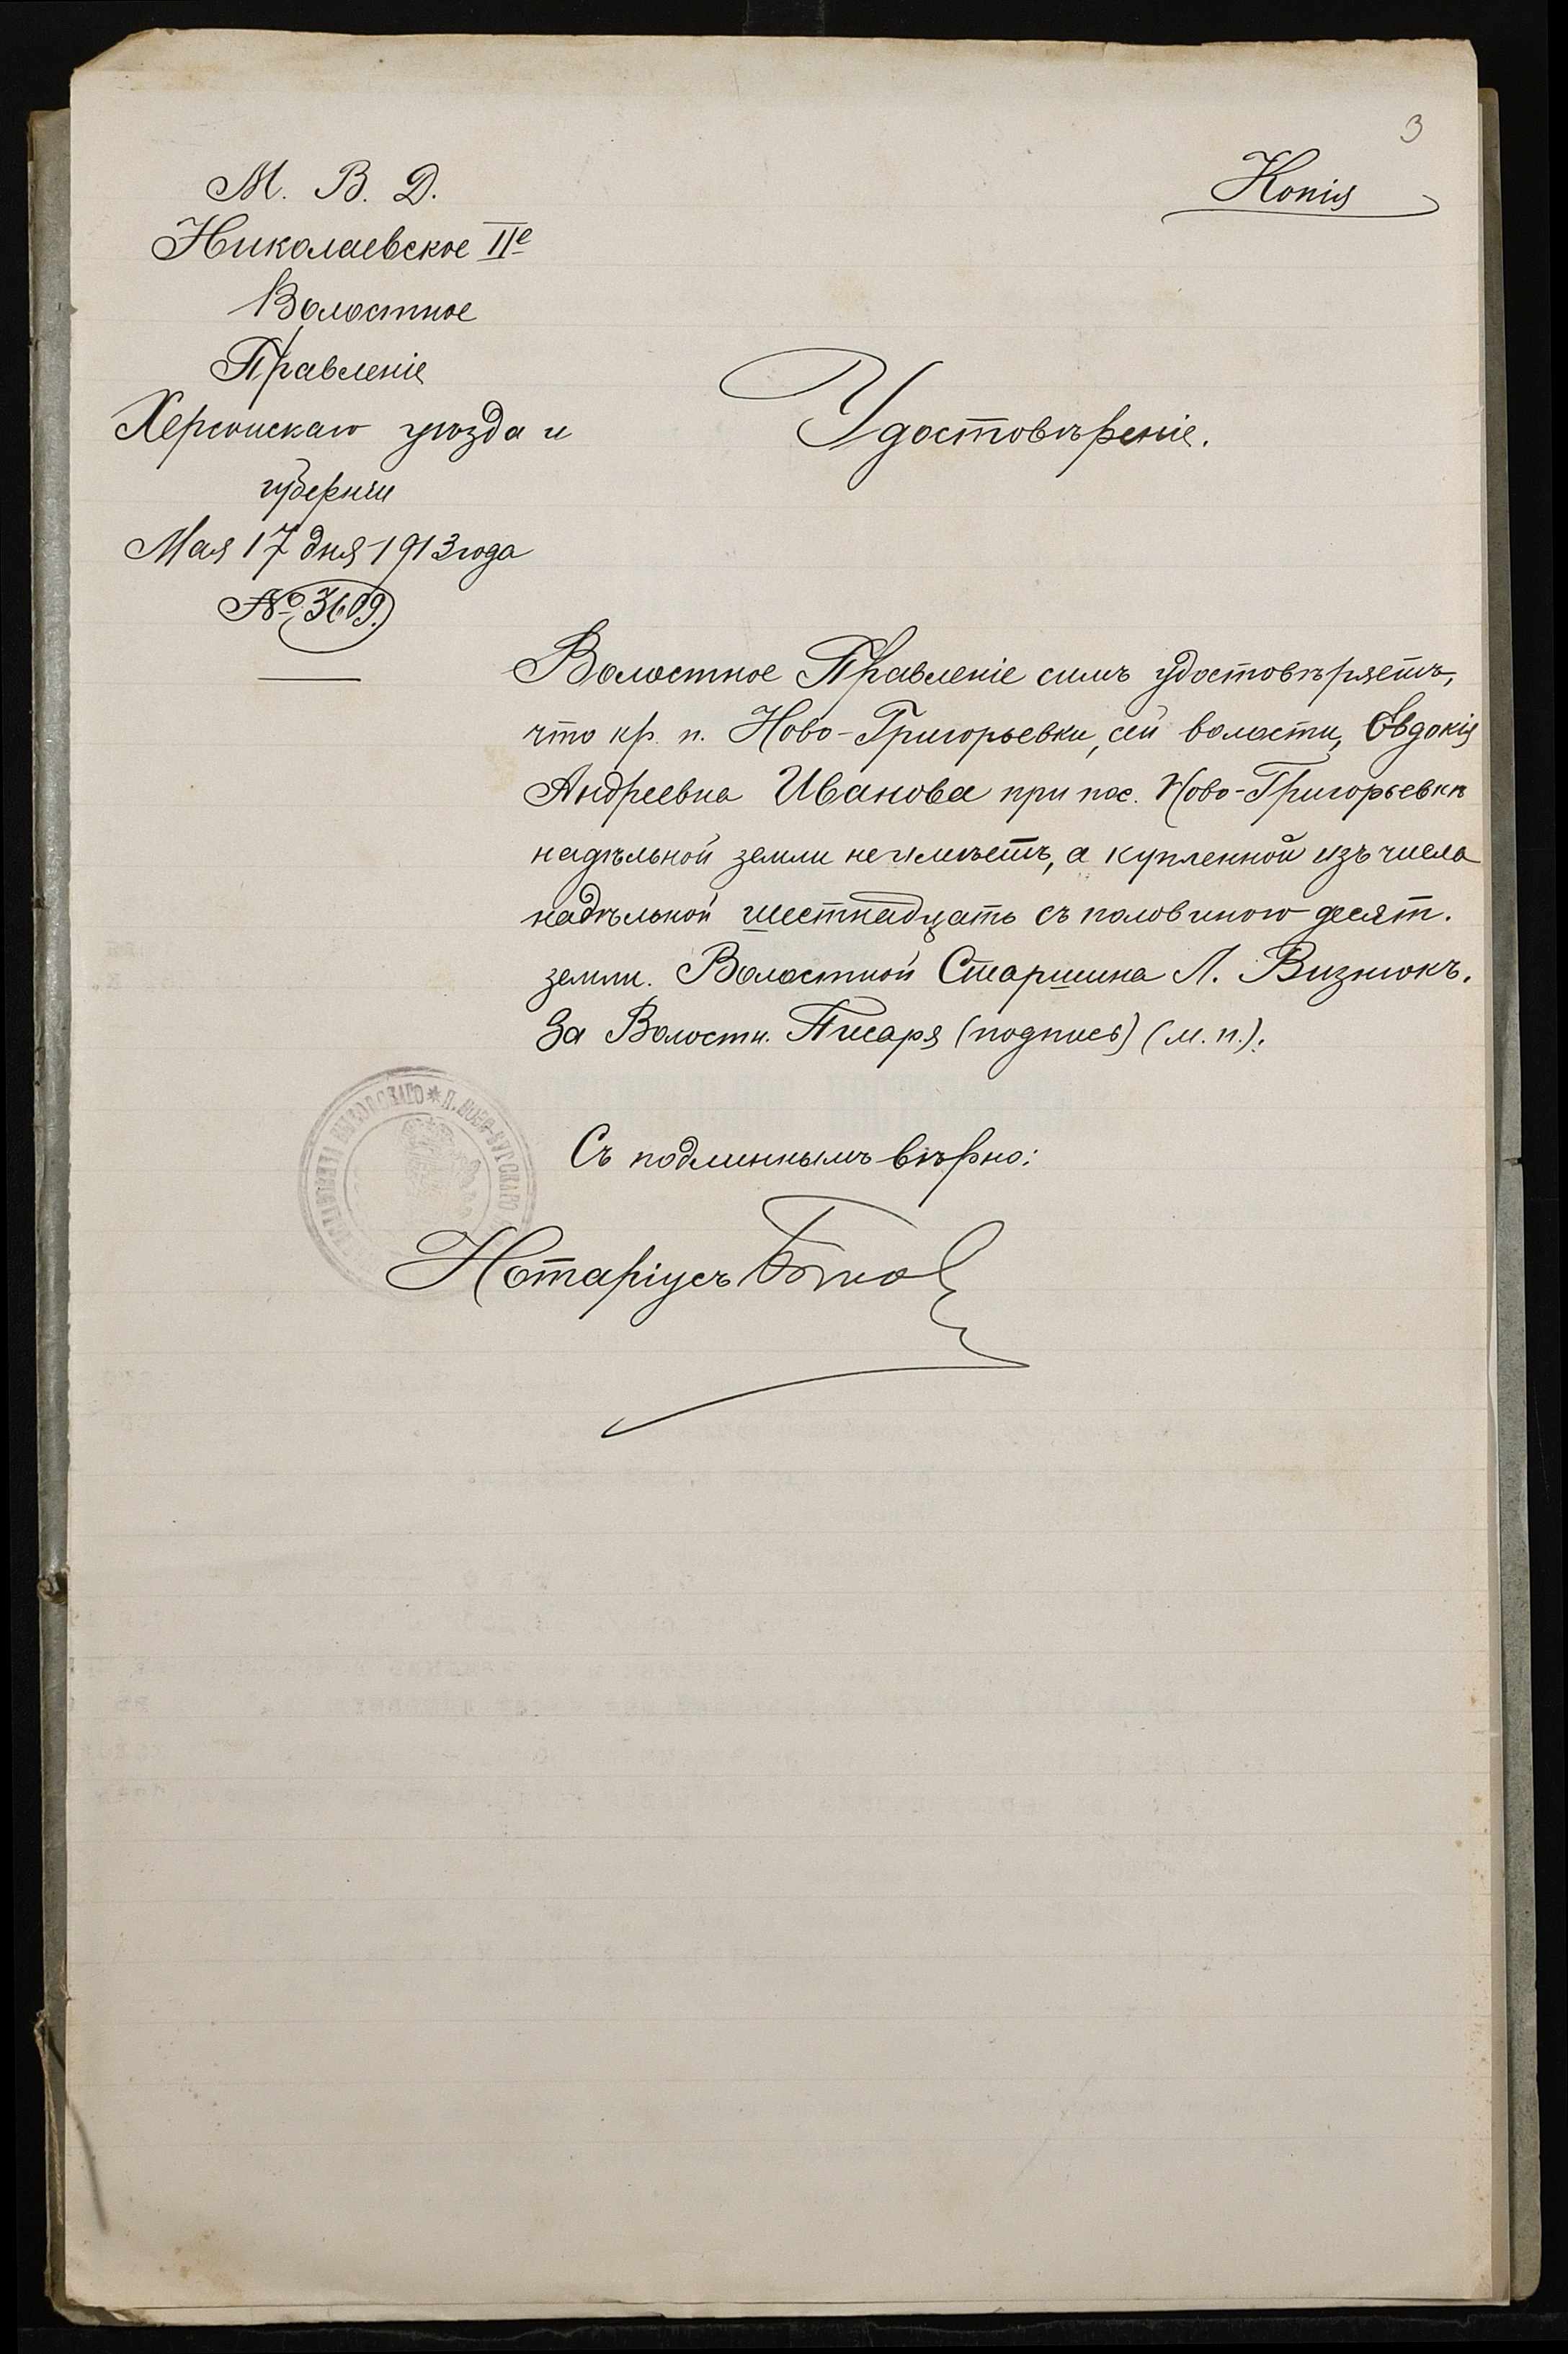 3
Копія
М. В. Д.
Николаевское II е
Волостное
Правленіе
Херсонскаго уѣзда и
губерніи
Мая 17 дня 1913 года
№ 3609.
Удостовѣреніе.
Волостное Правленіе симъ удостовѣряетъ,
что кр. п. Ново-Григорьевки, сей волости, Евдокія
Андреевна Иванова при пос. Ново-Григорьевкѣ
надѣльной земли не имѣетъ, а купленной изъ числа
надѣльной шестнадцать съ половиною десят.
земли. Волостной Старшина Л. Визнюкъ.
За Волостн. Писаря (подпись) (м. п.).
Съ подлиннымъ вѣрно:
Нотаріусъ